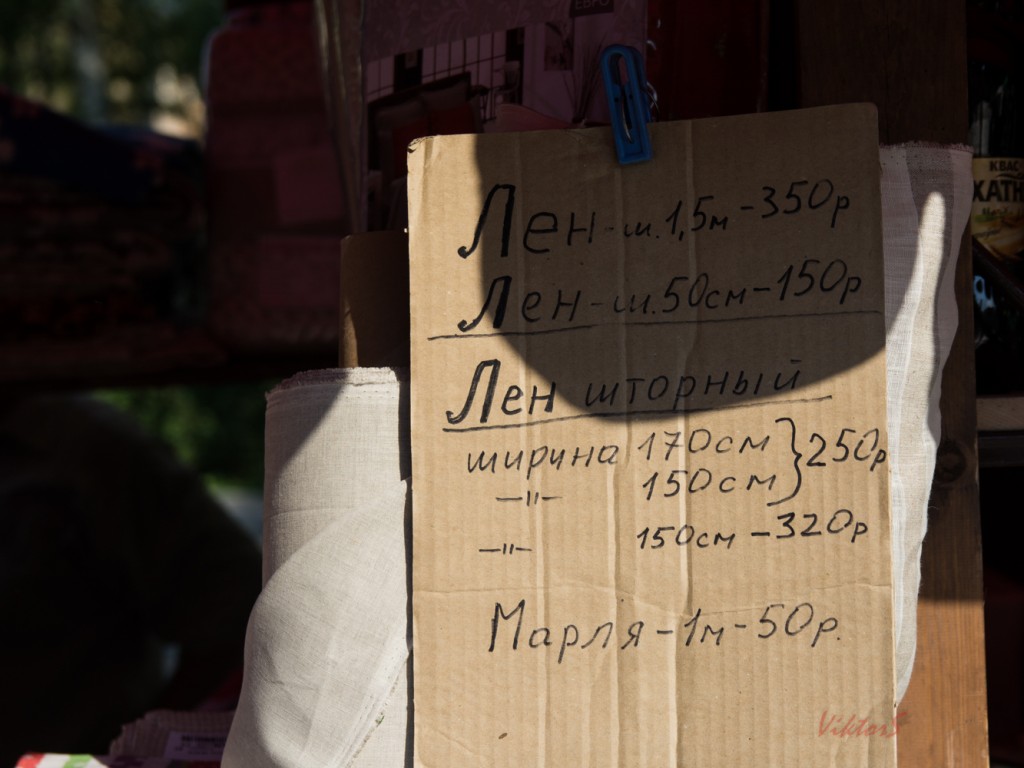 ЕВРО
Лен - ш. 1,5м - 350р
Лен - ш. 50см - 150р
Лен шторный
ширина 170см } 250р
—"— 150см
—"— 150см - 320р
Марля - 1м - 50р.
КВАС
ViktorS